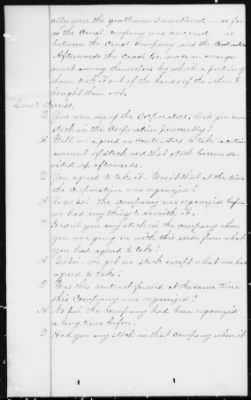 ally were the gentlemen I mentioned — so far
as the Canal Company was concerned — 
between the Canal Company and the Contractors
Afterwards the Canal Co. made an arrange-
ment among themselves by which a portion of
them took it out of the hands of the others &
bought them out.
Q You were one of the Corporators. Did you own
stock in the Corporation personally?
A Well we agreed as Contractors to take a certain
amount of stock and that stock was
divided up afterwards.
Q You agreed to take it. Was it that at the time
the Corporation was organized?
A No sir. the Company was organized before
we had anything to do with it.
Q Had you any stock in the company when
you were going on with this aside from what
you had agreed to take?
A No sir. we got no stock except what we had
agreed to take.
Q Was this contract formed at the same time
this Company was organized?
A No sir the Company had been organized
a long time before.
Q Had you any stock in that Company when it